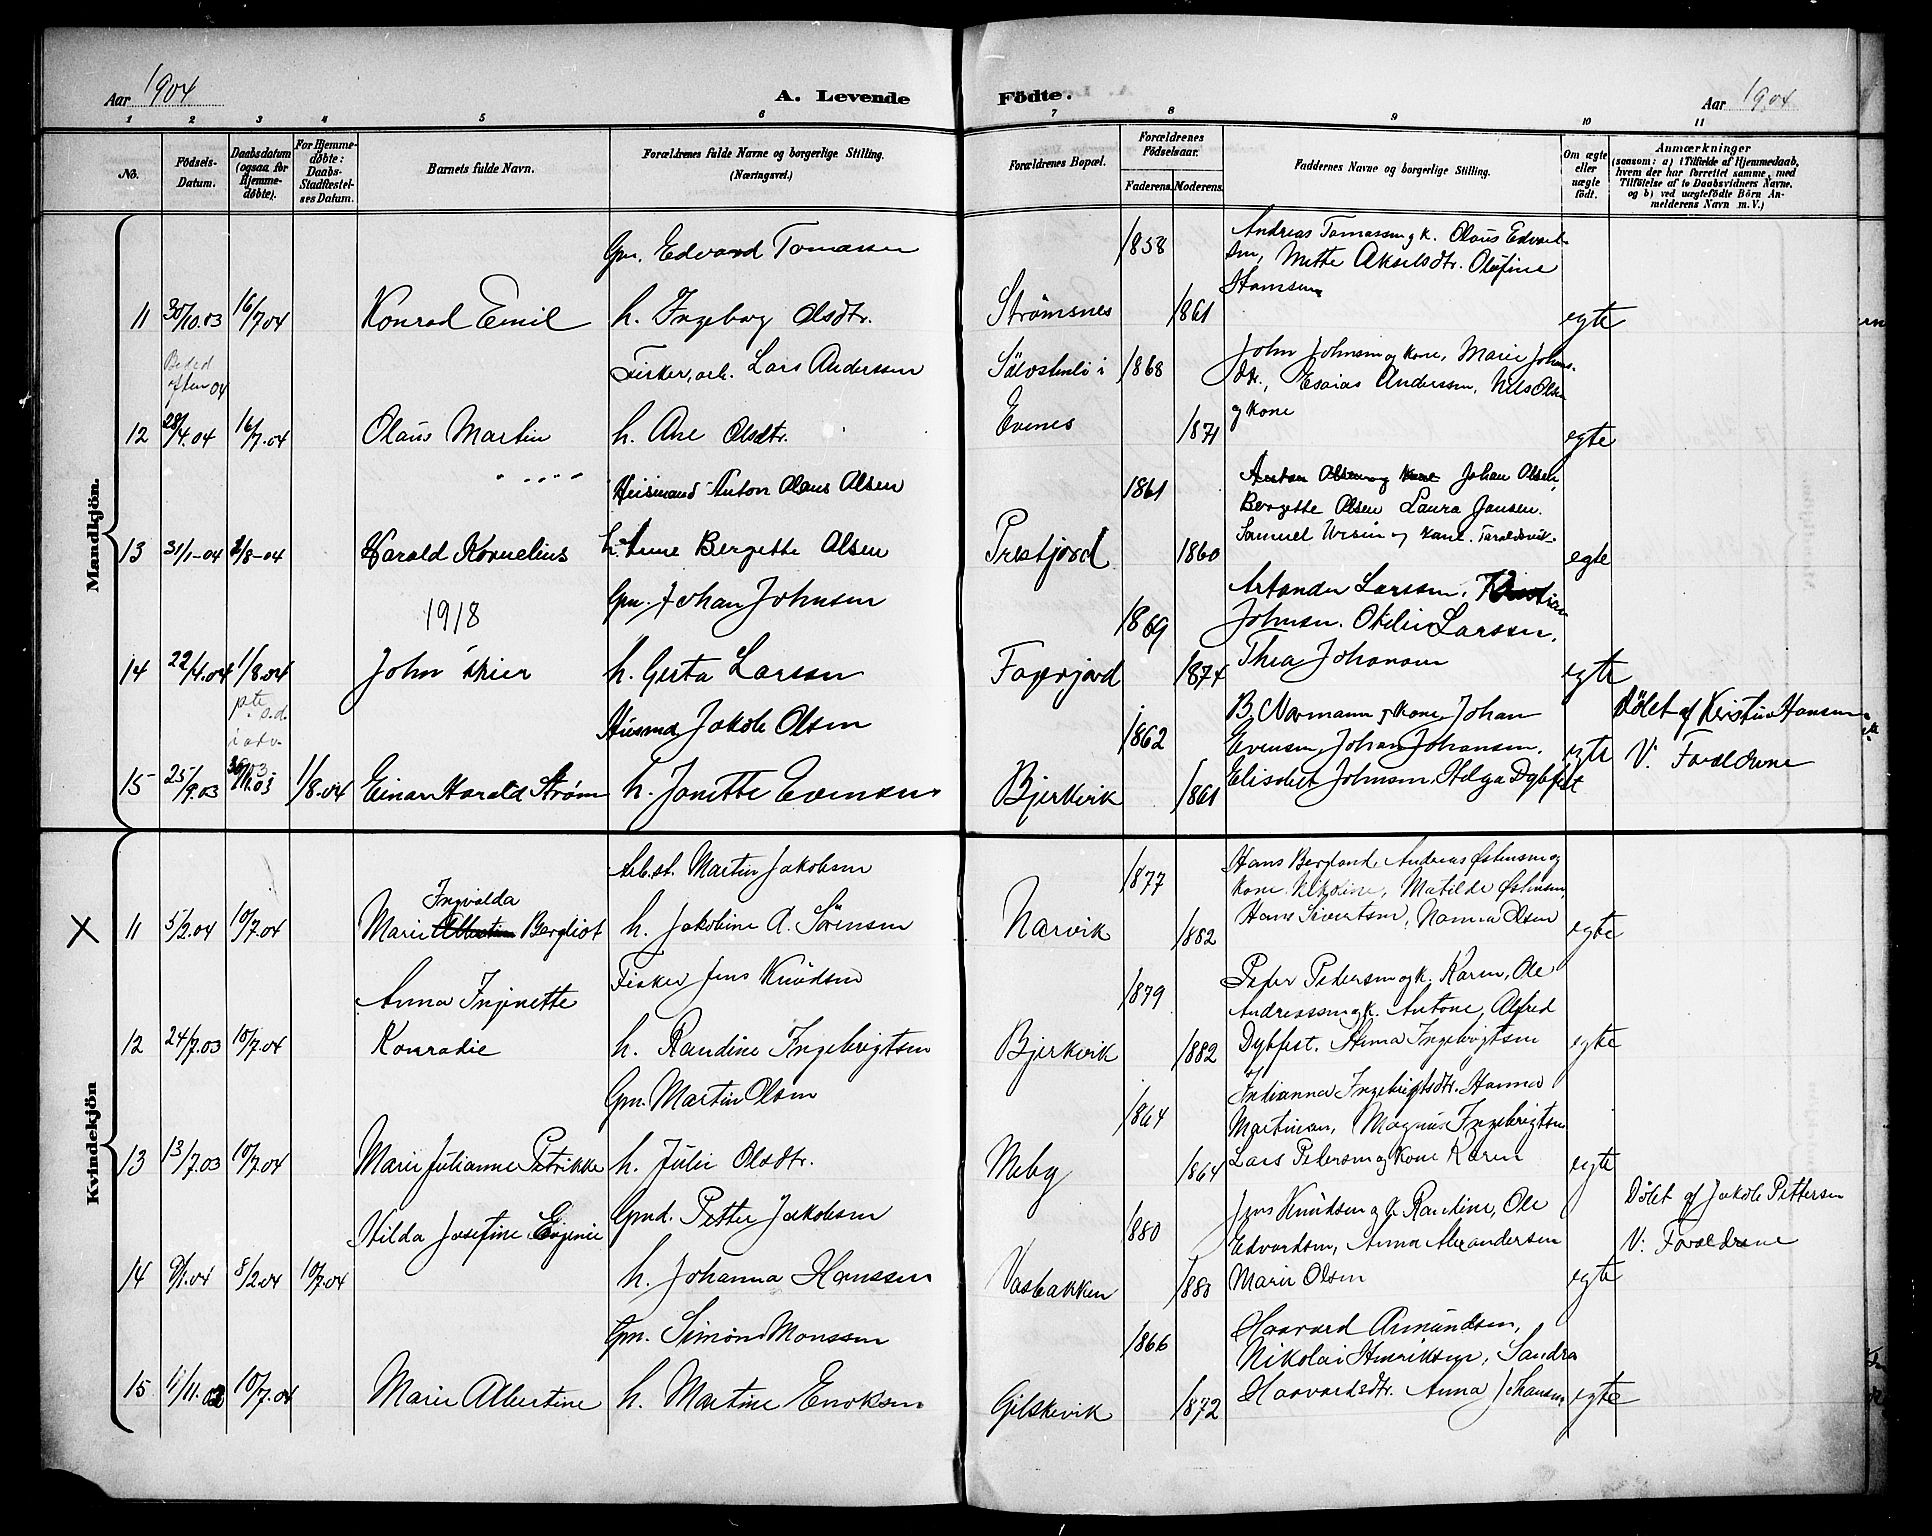 Aar 1904
A. Levende
Födte.
Aar 1904
1 2 3 4 5 6 7 8 9 10 11
No.
Fødsels-
Datum.
Daabsdatum
(ogsaa for
Hjemme-
døbte).
For Hjemme-
døbte:
Daabs-
Stadfæstel-
ses Datum.
Barnets fulde Navn.
Forældrenes fulde Navne og borgerlige Stilling.
(Næringsvei.)
Forældrenes Bopæl.
Forældrenes
Fødselsaar.
Faderens.
Moderens.
Faddernes Navne og borgerlige Stilling.
Om ægte
eller
uægte
født.
Anmærkninger
(saasom: a) i Tilfælde af Hjemmedaab,
hvem der har forrettet samme, med
Tilføielse af to Daabsvidners Navne,
og b) ved uægtefødte Börn An-
melderens Navn m. V.)
Mandkjön.
Gm. Edvard Tomassen
1858
Andreas Tomassen og k. Olaus Edvard-
sen, Mette Akselsdtr. Olufine
Hansen
11 30/10.03 16/7 04 Konrad Emil h. Ingeborg Olsdtr. Strømsnes 1861 egte
Fisker, arb. Lars Anderssen
i 1868
John Johnsen og Kone, Marie Johns-
dtr., Esaias Anderssen, Nils Olsen
og Kone
12 28/4.04 16/7.04 Olaus Martin h. Ane Olsdtr. Evenes 1871 egte
Husmand Anton Olaus Olsen
1861
Anton Olsen og Kone Johan Olsen,
Bergette Olsen Laura Jansen.
Samuel Ursin og Kone. Taraldsvik.
13 31/1-04 3/8-04 Harald Kornelius h. Anne Bergette Olsen Prestjord 1860 egte
1918
Gm. Johan Johnsen
1869
Artander Larssen, Kristian
Johnsen. Otelie Larssen,
Thea Johansen
14 22/4.04 1/8.04 John h. Gerta Larsen Fagerjord 1874 egte
Husmd Jakob Olsen
1862
B. Normann og Kone, Johan
Evensen, Johan Johansen,
Elisabet Johnsen, Helga Dybfest
Døbt af Kristine Hansen
V: Forældrene
15 25/9.03 1/8.04 Einar Harald Strøm h. Janette Evensen Bjerkvik 1861 egte
Kvindekjön
Arb.st. Martin Jakobsen
1877
Hans Bergland, Andreas Østensen og
Kone Nikoline, Matilde Østensen,
Hans Sivertsen, Nanna Olsen
X 11 5/2.04 10/7.04 Marie Albertine Ingvalda Bergliot h. Jakobine A. Sörensen Narvik 1882 egte
Fisker Jens Knudsen
1879
Peder Pedersen og k. Karen, Ole
Andreassen og k. Antone, Alfred
Dybfest. Anna Ingebrigtsen
12 24/7.03 10/7.04 Anna Ingenette
Konradie h. Randine Ingebrigtsen Bjerkvik 1882 egte
Gm. Martin Olsen
1864
Indianna Ingebrigtsdtr. Hanna
Martinsen, Magnus Ingebrigtsen
Lars Pedersen og Kone Karen
13 13/7.03 10/7.04 Marie Julianne Petrikke h. Julie Olsdtr. Meby 1864 egte
Hilda Josefine Eugenie
Gmd. Petter Jakobsen
1880
Jens Knudsen og k. Randine, Ole
Edvardsen, Anna Alexandersen
Marie Olsen
Døbt af Jakob Pettersen
V: Forældrene
14 9/1.04 8/2.04 10/7.04 h. Johanna Hanssen Vasbakken 1880 egte
Gm. Simon Monssen
1866
Haavard Amundsen,
Nikolai Henriksen, Sandra
Haavardsdtr. Anna Johansen
15 11/11.03 10/7.04 Marie Albertine h. Martine Enoksen Gilskevik 1872 egte